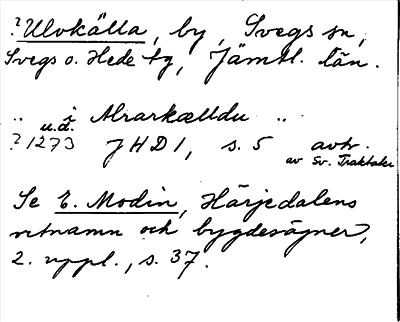 ?Ulvkälla, by, Svegs sn,
Svegs o. Hede tg, Jämtl. län.
.. i Alrarkælldu ..
u.d.
?1273 JHD1, s. 5 avtr.
av Sv. Traktater
Se E. Modin, Härjedalens
ortnamn och bygdesägner,
2. uppl., s. 37.